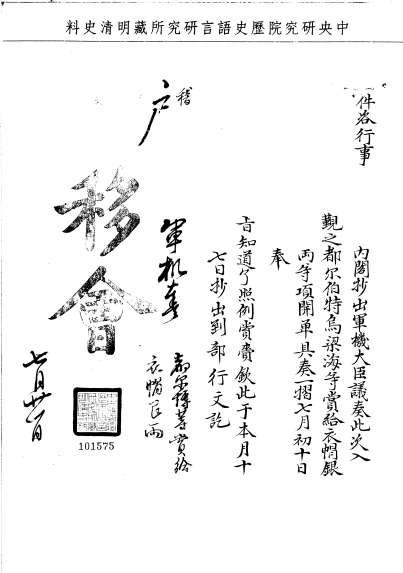 中央研究院歷史語言研究所藏明清史料
一件咨行事
內閣抄出軍機大臣議奏此次入
覲之都尔伯特烏梁海等賞給衣帽銀
両等項開單具奏一摺七月初十日
奉
旨知道了照例賞賚欽此于本月十
七日抄出到部行文訖
稽
戶
移會
軍机奏
等賞給
衣帽艮両
七月廿一日
101575